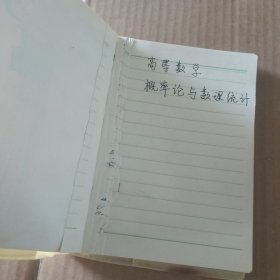 高等数学
概率论与数理统计